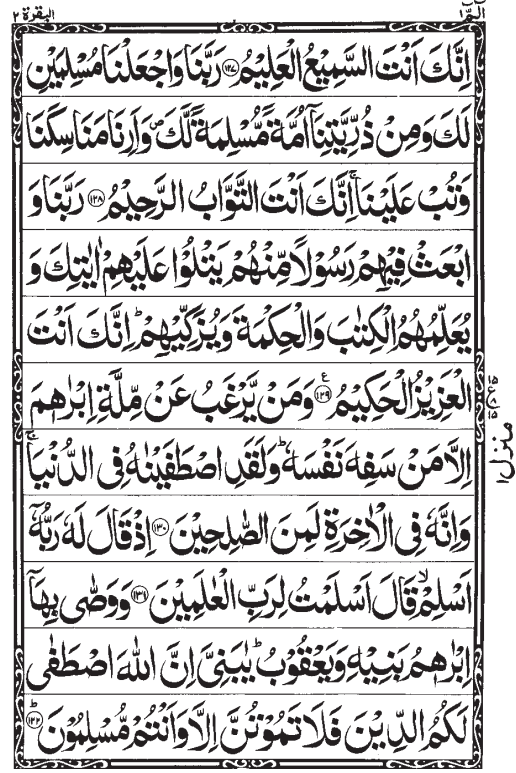 البقرة ٢
الٓمّٓ ١
اِنَّكَ اَنْتَ السَّمِيْعُ الْعَلِيْمُ ﴿١٢٧﴾ رَبَّنَا وَاجْعَلْنَا مُسْلِمَيْنِ
لَكَ وَمِنْ ذُرِّيَّتِنَآ اُمَّةً مُّسْلِمَةً لَّكَ ۪ وَاَرِنَا مَنَاسِكَنَا
وَتُبْ عَلَيْنَا ۚ اِنَّكَ اَنْتَ التَّوَّابُ الرَّحِيْمُ ﴿١٢٨﴾ رَبَّنَا وَ
ابْعَثْ فِيْهِمْ رَسُوْلًا مِّنْهُمْ يَتْلُوْا عَلَيْهِمْ اٰيٰتِكَ وَ
يُعَلِّمُهُمُ الْكِتٰبَ وَالْحِكْمَةَ وَيُزَكِّيْهِمْ ؕ اِنَّكَ اَنْتَ
الْعَزِيْزُ الْحَكِيْمُ ﴿١٢٩﴾ ع وَمَنْ يَّرْغَبُ عَنْ مِّلَّةِ اِبْرٰهٖمَ
اِلَّا مَنْ سَفِهَ نَفْسَهٗ ؕ وَلَقَدِ اصْطَفَيْنٰهُ فِى الدُّنْيَا ۚ
وَاِنَّهٗ فِى الْاٰخِرَةِ لَمِنَ الصّٰلِحِيْنَ ﴿١٣٠﴾ اِذْ قَالَ لَهٗ رَبُّهٗۤ
اَسْلِمْ ۙ قَالَ اَسْلَمْتُ لِرَبِّ الْعٰلَمِيْنَ ﴿١٣١﴾ وَوَصّٰى بِهَآ
اِبْرٰهٖمُ بَنِيْهِ وَيَعْقُوْبُ ؕ يٰبَنِىَّ اِنَّ اللّٰهَ اصْطَفٰى
لَكُمُ الدِّيْنَ فَلَا تَمُوْتُنَّ اِلَّا وَاَنْتُمْ مُّسْلِمُوْنَ ؕ ﴿١٣٢﴾
منزل ١